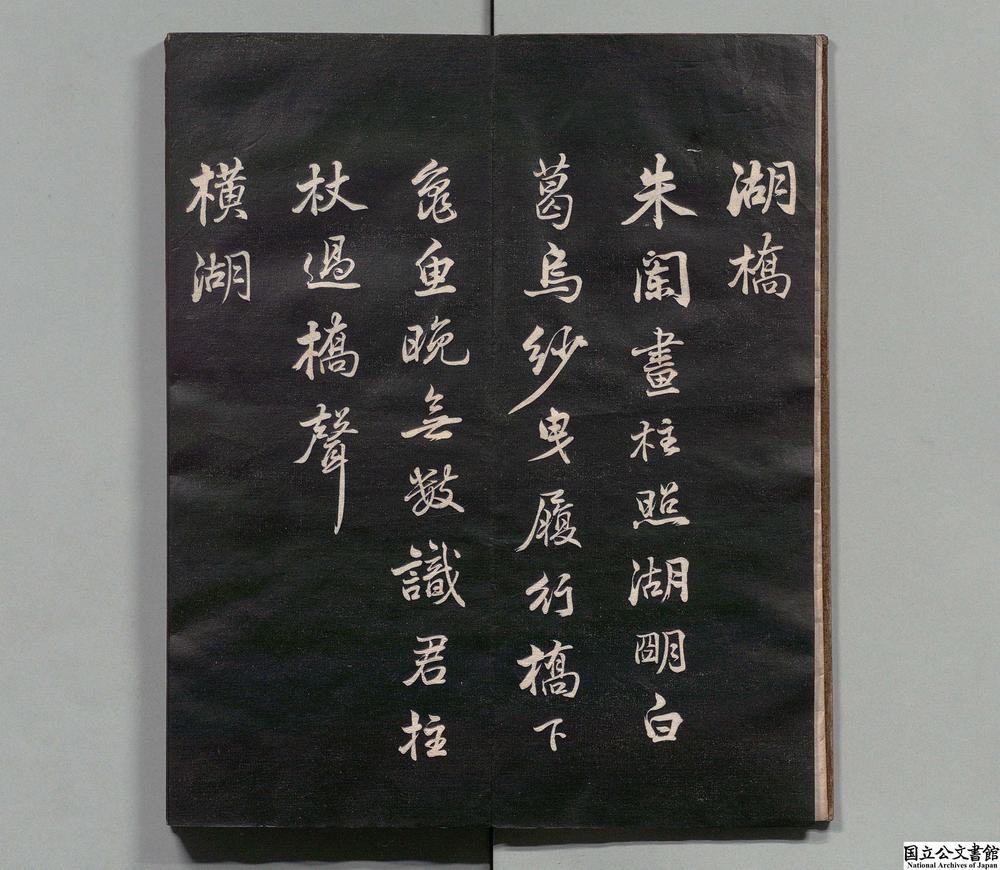 湖橋
朱闌畫柱照湖朙白
葛烏紗曳履行橋下
龜魚晚無數識君拄
杖過橋聲
橫湖
国立公文書館
National Archives of Japan